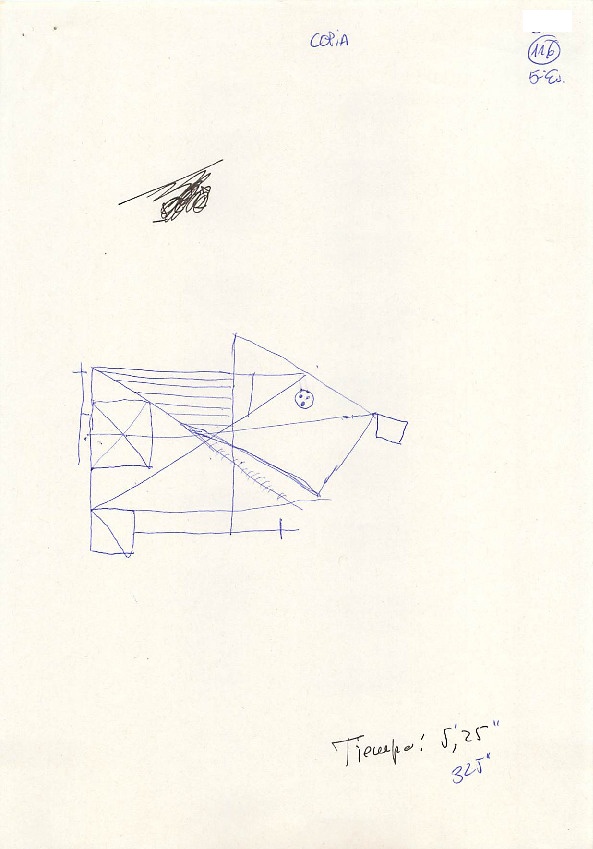 COPIA
116
5-Ev.
Tiempo: 5', 25"
325"